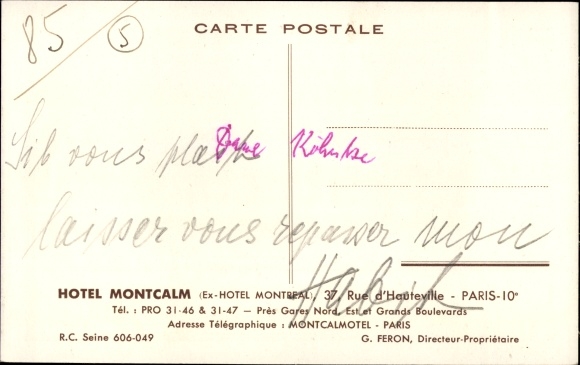 85 5
CARTE POSTALE
Sil vous plait
laisser vous repasser mon
HOTEL MONTCALM (Ex-HOTEL MONTREAL), 37, Rue d'Hauteville - PARIS-10e
Tél. : PRO 31-46 & 31-47 — Près Gares Nord, Est et Grands Boulevards
Adresse Télégraphique : MONTCALMOTEL - PARIS
R.C. Seine 606-049 G. FERON, Directeur-Propriétaire